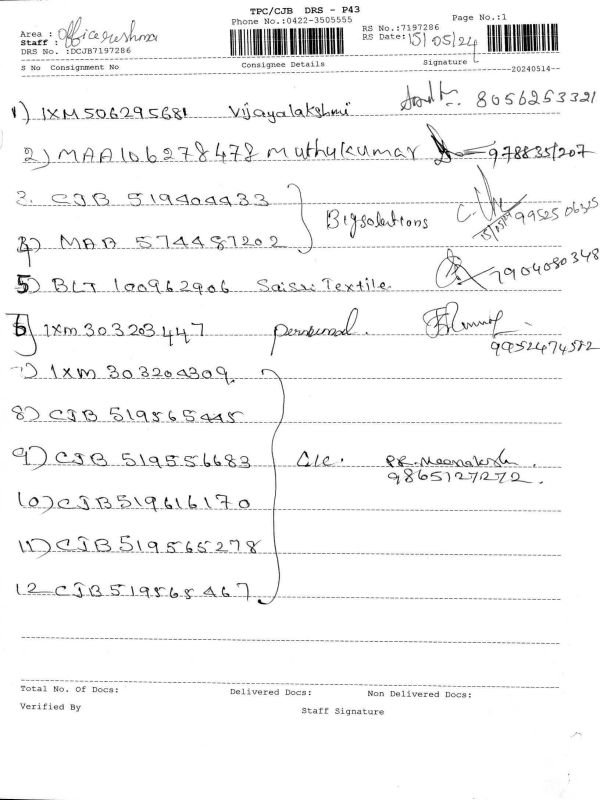 TPC/CJB DRS - P43
Phone No.:0422-3505555
Page No.:1
Area :
Staff :
RS No.:7197286
DRS No. :DCJB7197286
RS Date: 15/05/24
S No Consignment No Consignee Details Signature
--20240514--
1) IXM506295681 Vijayalakshmi 8056253321
2) MAA106278478 Muthukumar 9788351207
3. CJB 519404433
Bigsolutions 15/05/24 9952506315
4) MAA 574487202
5) BLT 100962906 Saisri Textile 7904080348
6) IXM 303203447 personal. 9952474572
7) IXM 303204309
8) CJB 519565445
9) CJB 519556683 LIC. P.R. Meenakshi
9865127272.
10) CJB519616170
11) CJB 519565278
12 CJB519565467
Total No. Of Docs: Delivered Docs: Non Delivered Docs:
Verified By Staff Signature